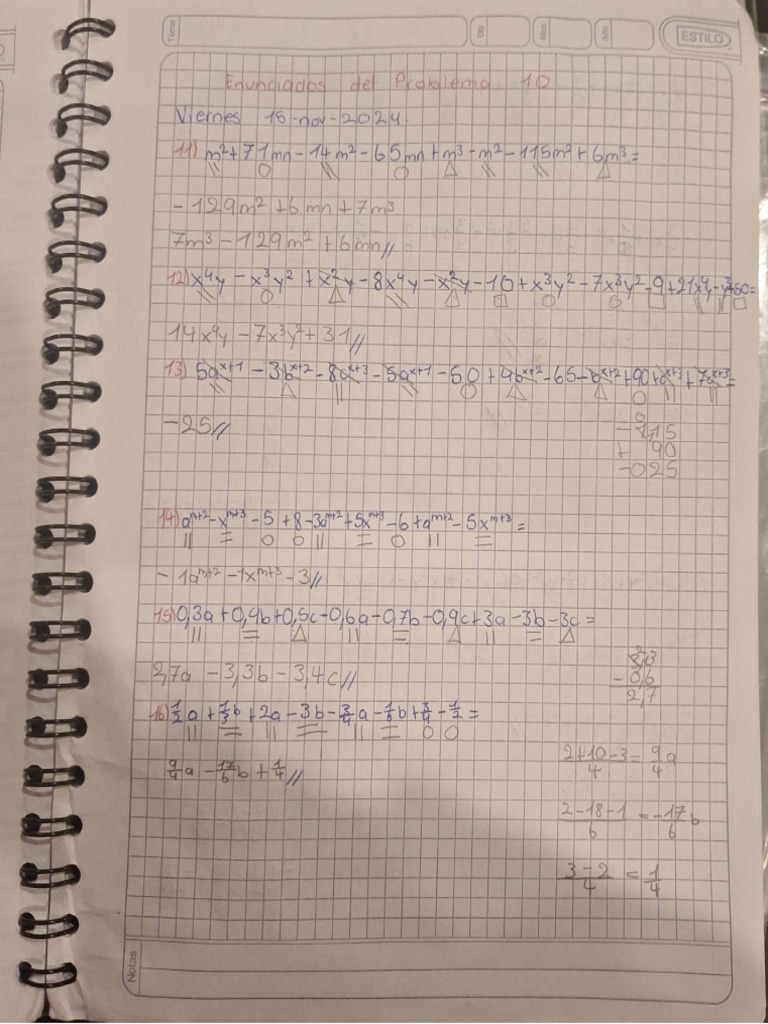 Tema
Día
Mes
Año
ESTILO
Enunciados del Problema 10
Viernes 15-nov-2024
11) m²+71mn-14m²-65mn+m³-m²-115m²+6m³=
-129m²+6mn+7m³
7m³-129m²+6mn//
12) x⁴y-x³y²+x²y-8x⁴y-x²y-10+x³y²-7x³y²-9+21x⁴y-y³+50=
14x⁴y-7x³y²+31//
13) 5aˣ⁺¹-3bˣ⁺²-8aˣ⁺³-5aˣ⁺¹-50+4bˣ⁺²-65-bˣ⁺²+90+aˣ⁺³+7aˣ⁺³=
-25//
-115
+ 90
-025
14) aᵐ⁺²-xᵐ⁺³-5+8-3aᵐ⁺²+5xᵐ⁺³-6+aᵐ⁺²-5xᵐ⁺³=
-1aᵐ⁺²-1xᵐ⁺³-3//
15) 0,3a+0,4b+0,5c-0,6a-0,7b-0,9c+3a-3b-3c=
2,7a-3,3b-3,4c//
3,3
-0,6
2,7
16) 1/2a+1/3b+2a-3b-3/4a-1/6b+3/4-1/2=
9/4a-17/6b+1/4//
2+10-3/4=9/4a
2-18-1/6=-17/6b
3-2/4=1/4
Notas